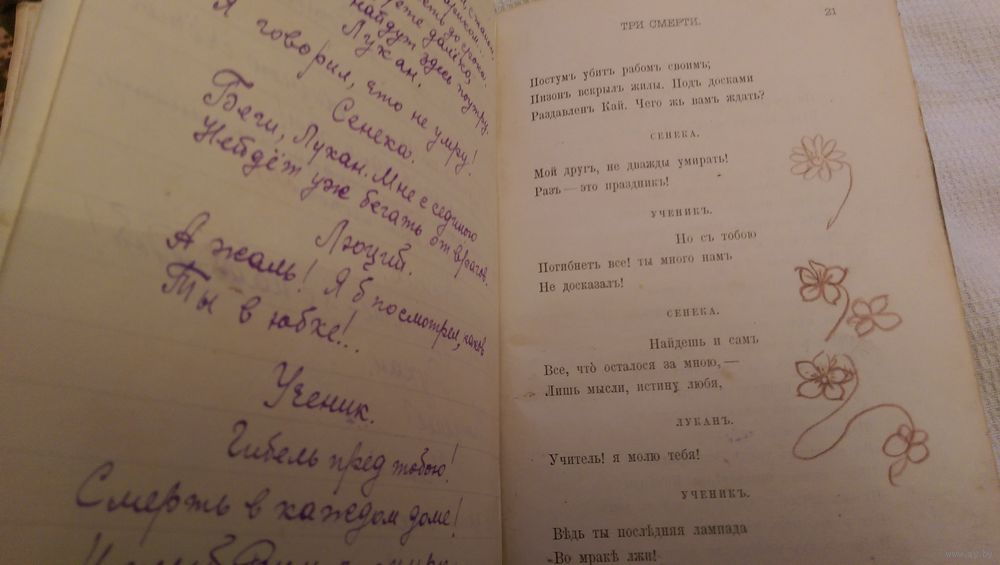 найдут здесь поутру,
Лукан.
Я говорил, что не умру!
Сенека.
Беги, Лукан. Мне с сединою
Нейдёт уж бегать от врагов.
Люций.
А жаль! Я б посмотрел, каков
Ты в юбке!..
Ученик.
Гибель пред тобою!
Смерть в каждом доме!
ТРИ СМЕРТИ.
21
Постумъ убитъ рабомъ своимъ;
Пизонъ вскрылъ жилы. Подъ досками
Раздавленъ Кай. Чего жъ вамъ ждать?
СЕНЕКА.
Мой другъ, не дважды умирать!
Разъ — это праздникъ!
УЧЕНИКЪ.
Но съ тобою
Погибнетъ все! ты много намъ
Не досказалъ!
СЕНЕКА.
Найдешь и самъ
Все, что̀ осталося за мною, —
Лишь мысли, истину любя,
ЛУКАНЪ.
Учитель! я молю тебя!
УЧЕНИКЪ.
Вѣдь ты послѣдняя лампада
Во мракѣ лжи!
www.ay.by